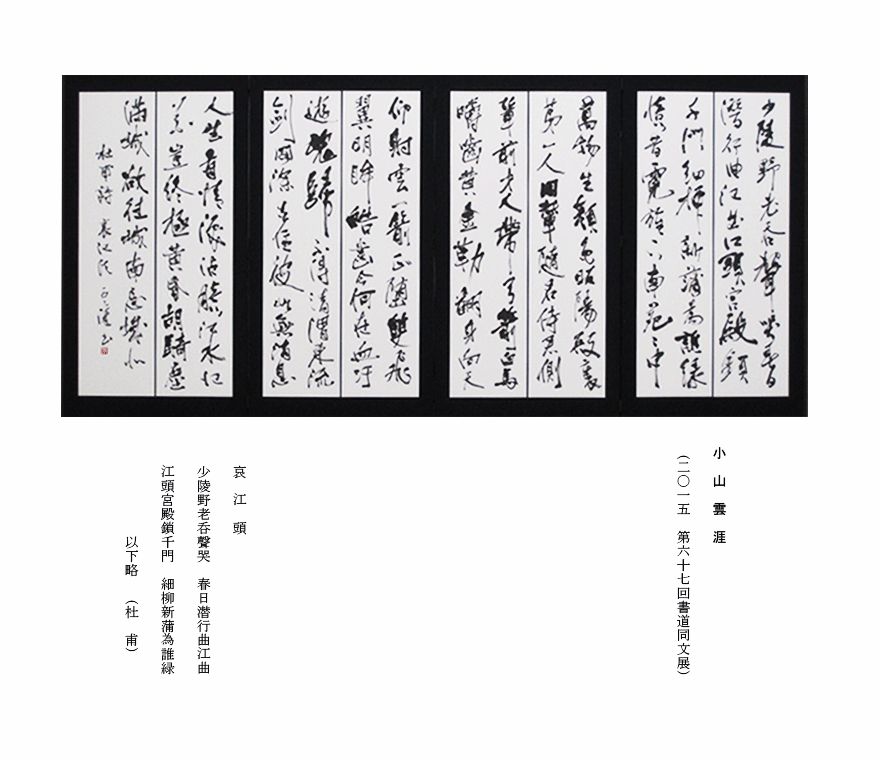 少陵野老呑聲哭春日
潛行曲江曲江頭宮殿鎖
千門細柳新蒲為誰緑
憶昔霓旌下南苑苑中
萬物生顔色昭陽殿裏
第一人同輦隨君侍君側
輦前才人帶弓箭白馬
嚼齧黄金勒翻身向天
仰射雲一箭正墜雙飛
翼明眸皓齒今何在血汚
遊魂歸不得清渭東流
劍閣深去住彼此無消息
人生有情涙沾臆江水江
花豈終極黄昏胡騎塵
滿城欲往城南忘城北
杜甫詩 哀江頭
小山雲涯
（二〇一五 第六十七回書道同文展）
哀江頭
少陵野老呑聲哭 春日潜行曲江曲
江頭宮殿鎖千門 細柳新蒲為誰緑
以下略 （杜 甫）